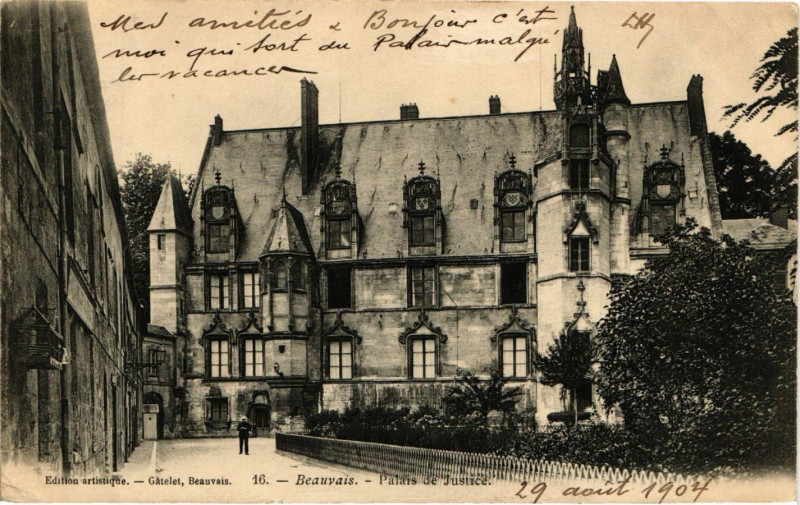 Mes amitiés & Bonjour c'est
moi qui sort du Palais malgré
les vacances
Edition artistique. — Gâtelet, Beauvais. 16. — Beauvais. - Palais de Justice.
29 août 1904